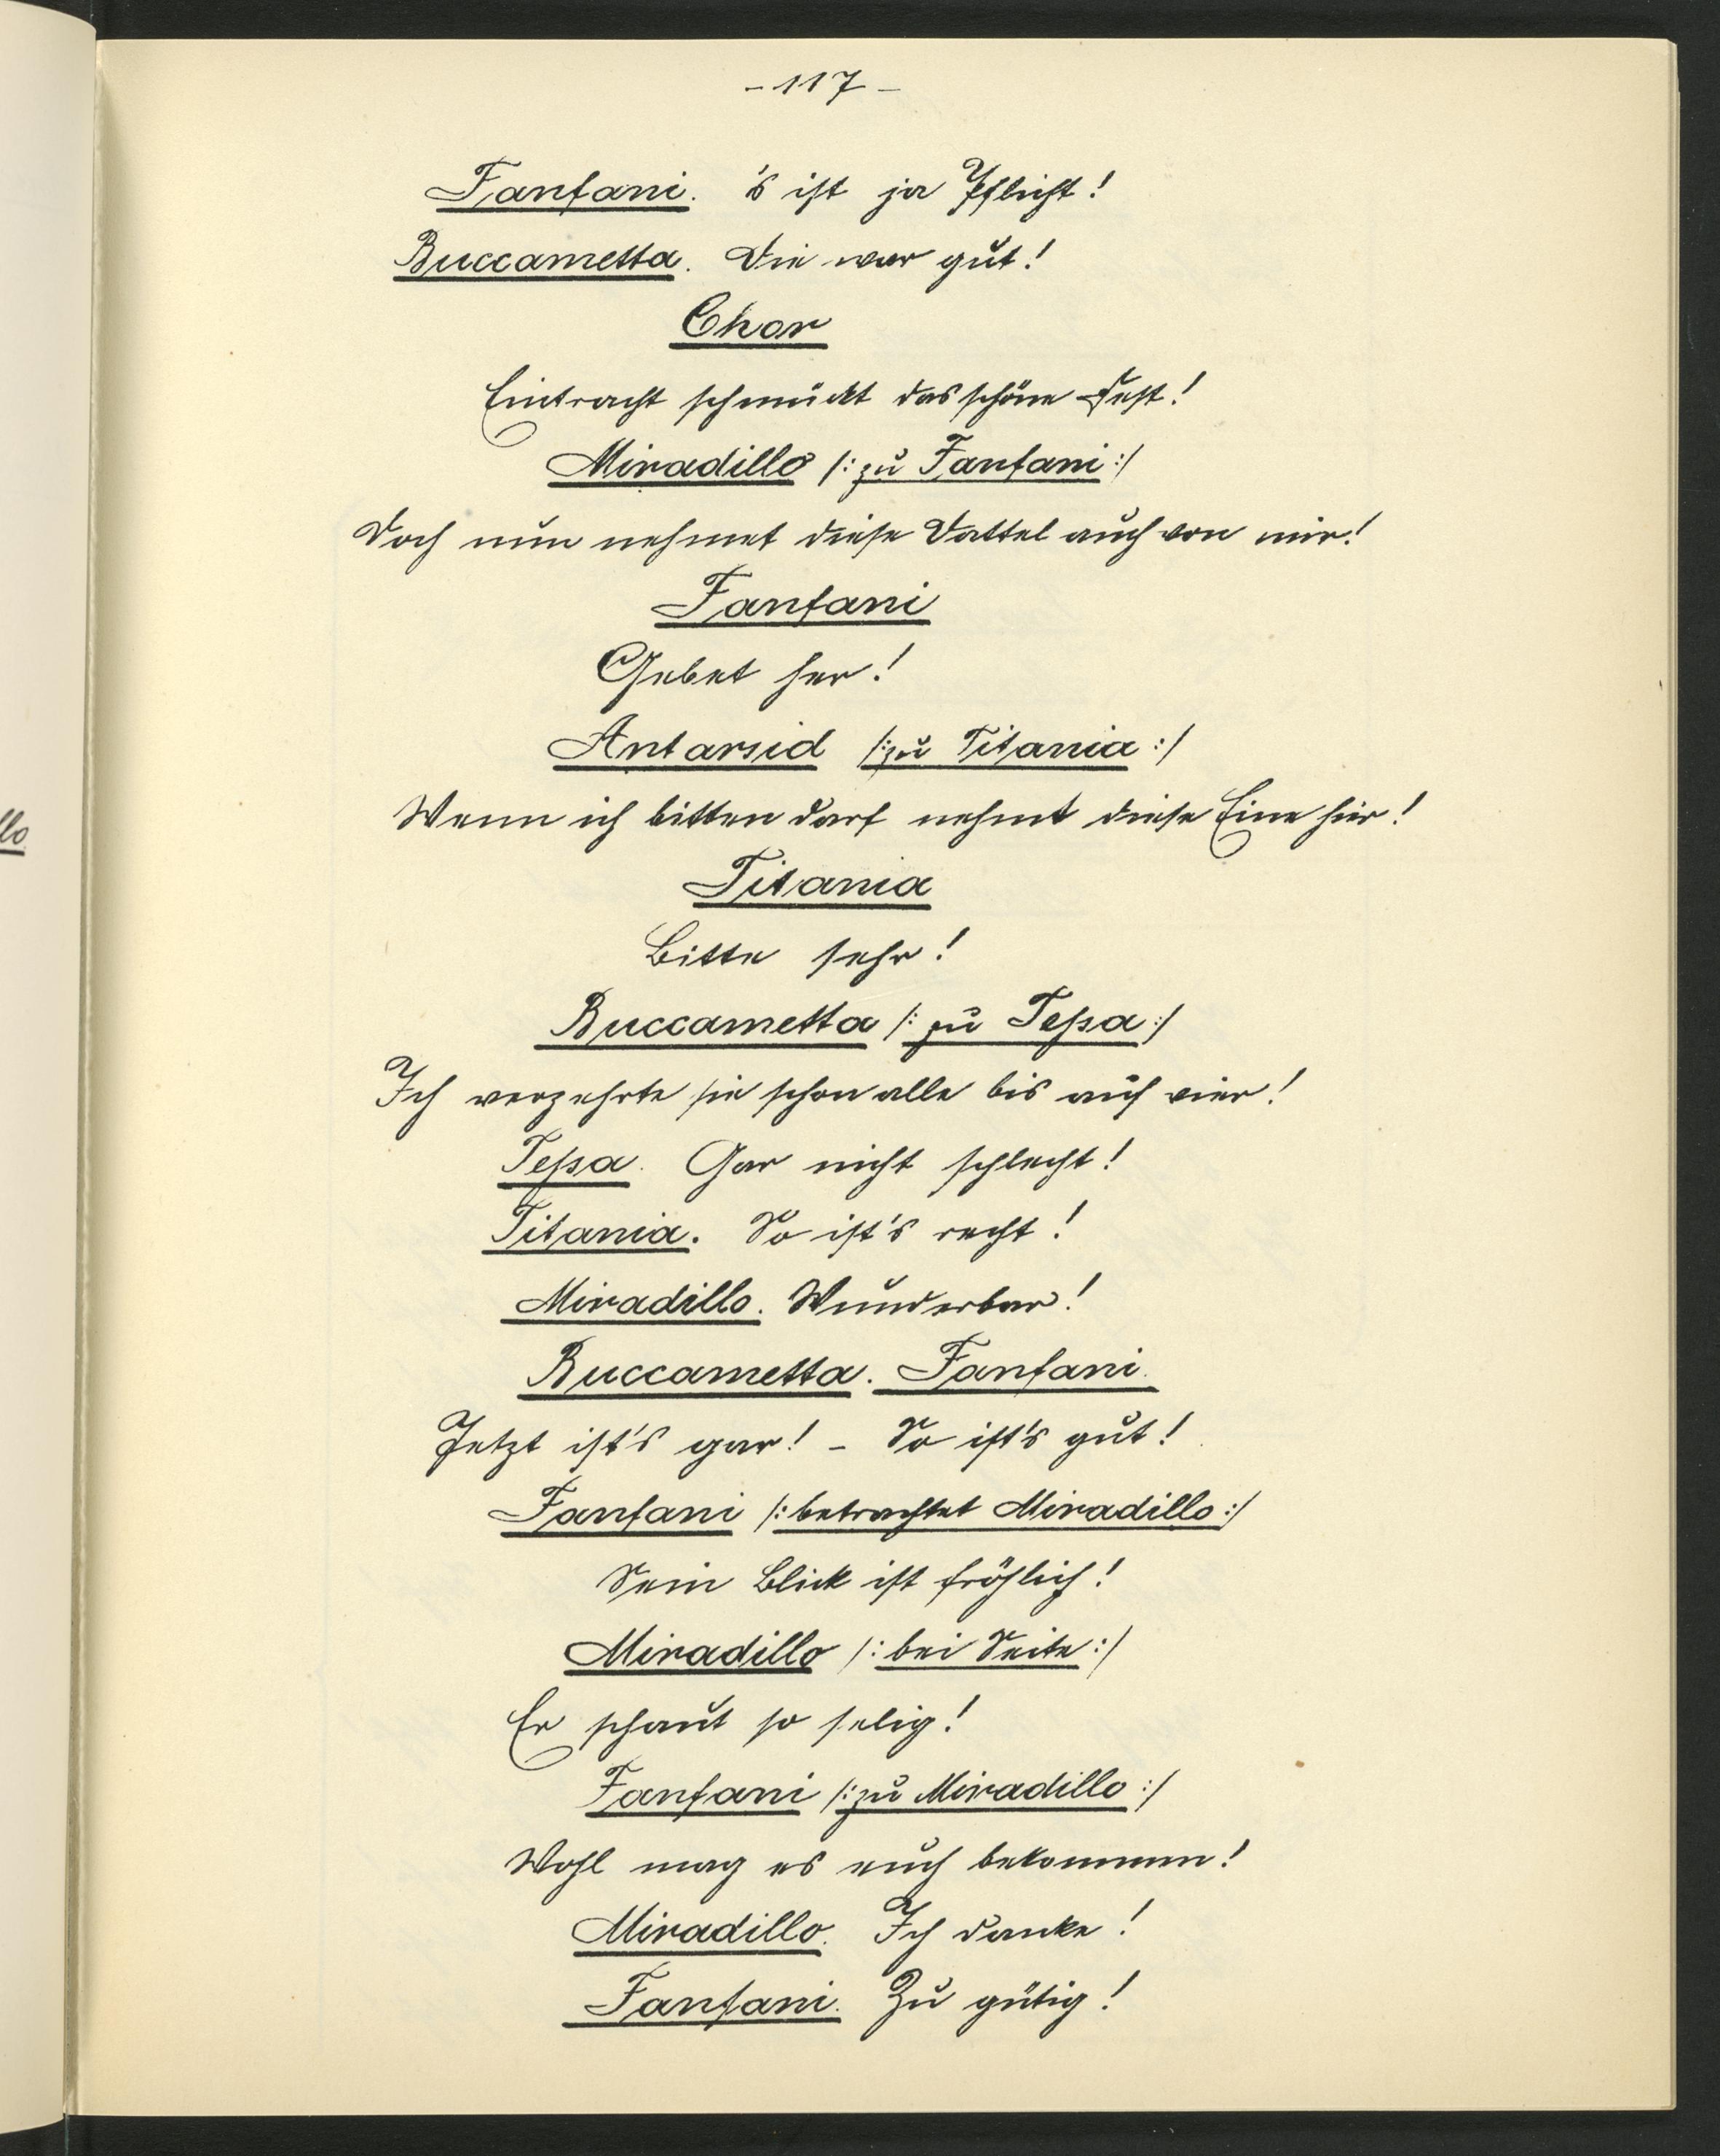 - 117 -
Fanfani. 's ist ja Pflicht!
Buccametta. Die war gut!
Chor
Eintracht schmückt das schöne Fest!
Miradillo /: zu Fanfani :/
Doch nun nehmet diese Dattel auch von mir!
Fanfani
Gebet her!
Antarsid /: zu Titania :/
Wenn ich bitten darf nehmt diese Eine hier!
Titania
Bitte sehr!
Buccametta /: zu Tessa :/
Ich verzehrte sie schon alle bis auf vier!
Tessa. Gar nicht schlecht!
Titania. So ist's recht!
Miradillo. Wunderbar!
Buccametta. Fanfani.
Jetzt ist's gar! - So ist's gut!
Fanfani /: betrachtet Miradillo :/
Sein Blick ist fröhlich!
Miradillo /: bei Seite :/
Er schaut so selig!
Fanfani /: zu Miradillo :/
Wohl mag es euch bekommen!
Miradillo. Ich danke!
Fanfani. Zu gütig!
llo